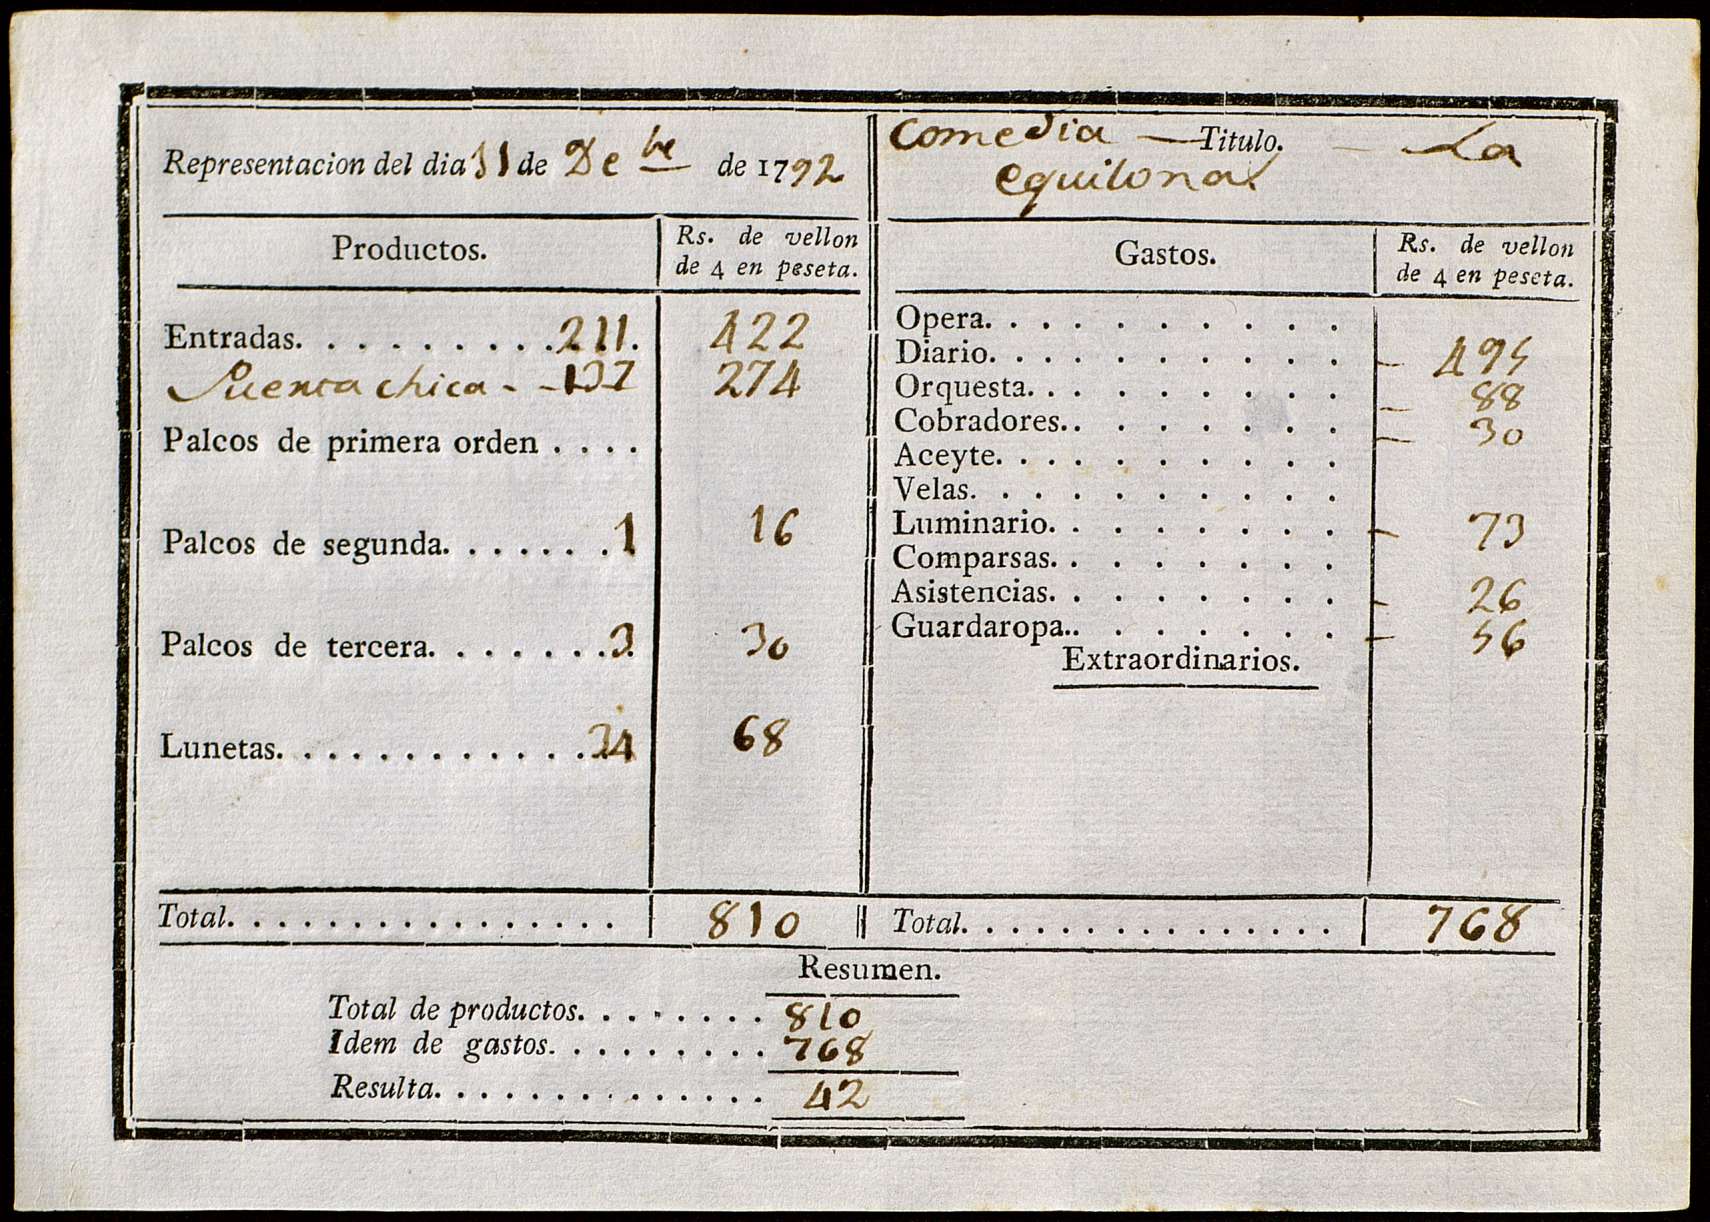 Representacion del dia 31 de De bre de 1792
Comedia — Titulo. — La
eguilona
Productos.
Rs. de vellon
de 4 en peseta.
Entradas. . . . . . . . . . 211. 422
Puerta chica - - 137 274
Palcos de primera orden . . . .
Palcos de segunda. . . . . . . 1 16
Palcos de tercera. . . . . . . . 3 30
Lunetas. . . . . . . . . . . . . 34 68
Total. . . . . . . . . . . . . . . . 810
Gastos.
Rs. de vellon
de 4 en peseta.
Opera. . . . . . . . . .
Diario. . . . . . . . . . — 495
Orquesta. . . . . . . . . — 88
Cobradores. . . . . . . . — 30
Aceyte. . . . . . . . . .
Velas. . . . . . . . . .
Luminario. . . . . . . . — 73
Comparsas. . . . . . . .
Asistencias. . . . . . . . — 26
Guardaropa.. . . . . . . — 56
Extraordinarios.
Total. . . . . . . . . . . . . . . . 768
Resumen.
Total de productos. . . . . . . . 810
Idem de gastos. . . . . . . . . 768
Resulta. . . . . . . . . . . . . . 42